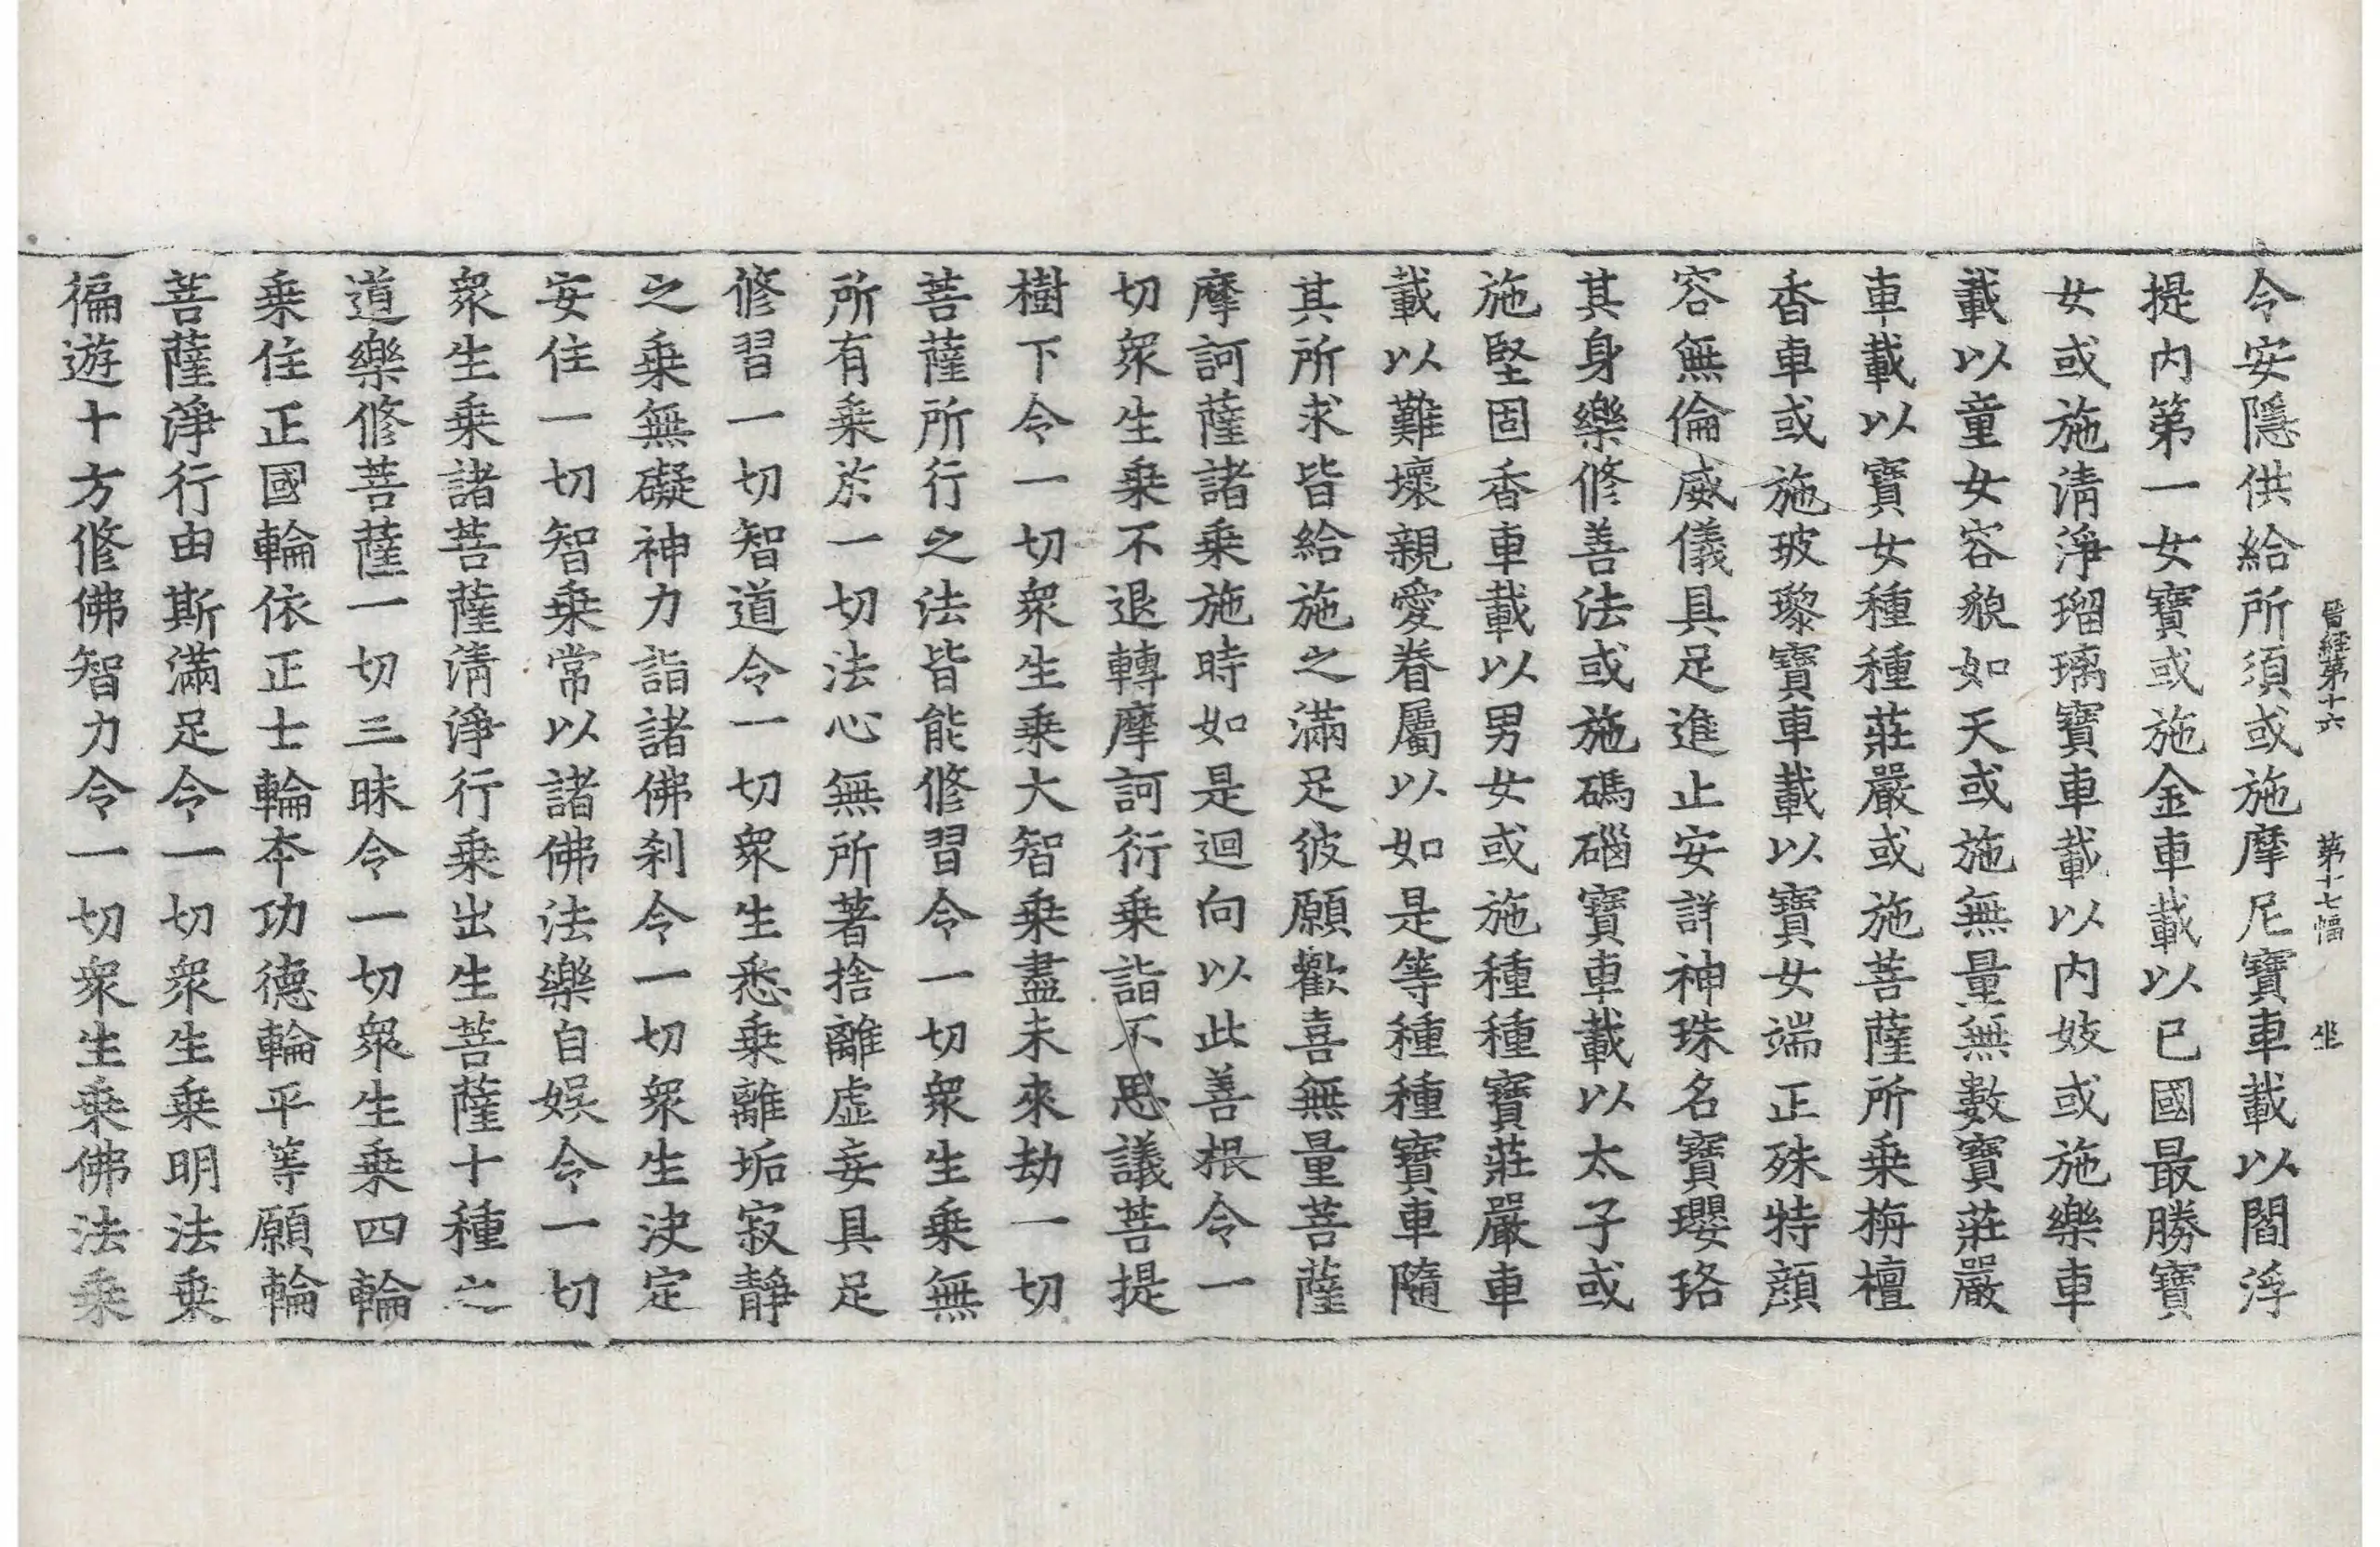 晉經第十六 第十七幅 坐
令安隱供給所須或施摩尼寶車載以閻浮
提内第一女寶或施金車載以已國最勝寶
女或施淸淨瑠璃寶車載以内妓或施樂車
載以童女容貌如天或施無量無數寶莊嚴
車載以寶女種種莊嚴或施菩薩所乗栴檀
香車或施玻瓈寶車載以寶女端正殊特顔
容無倫威儀具足進止安詳神珠名寶瓔珞
其身樂修善法或施碼碯寶車載以太子或
施堅固香車載以男女或施種種寶莊嚴車
載以難壞親愛眷屬以如是等種種寶車隨
其所求皆給施之滿足彼願歡喜無量菩薩
摩訶薩諸乗施時如是迴向以此善根令一
切衆生乗不退轉摩訶衍乗詣不思議菩提
樹下令一切衆生乗大智乗盡未來劫一切
菩薩所行之法皆能修習令一切衆生乗無
所有乗於一切法心無所著捨離虚妄具足
修習一切智道令一切衆生悉乗離垢寂靜
之乗無礙神力詣諸佛刹令一切衆生決定
安住一切智乗常以諸佛法樂自娱令一切
衆生乗諸菩薩淸淨行乗出生菩薩十種之
道樂修菩薩一切三昧令一切衆生乗四輪
乗住正國輪依正士輪本功德輪平等願輪
菩薩淨行由斯滿足令一切衆生乗明法乗
徧遊十方修佛智力令一切衆生乗佛法乗